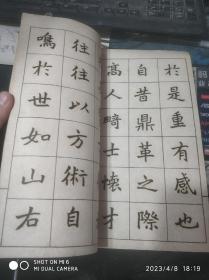 於是重有感也
自昔鼎革之際
高人畸士懷才
往往以方術自
鳴於世如山右
SHOT ON MI 6
MI DUAL CAMERA
2023/4/8 18:19